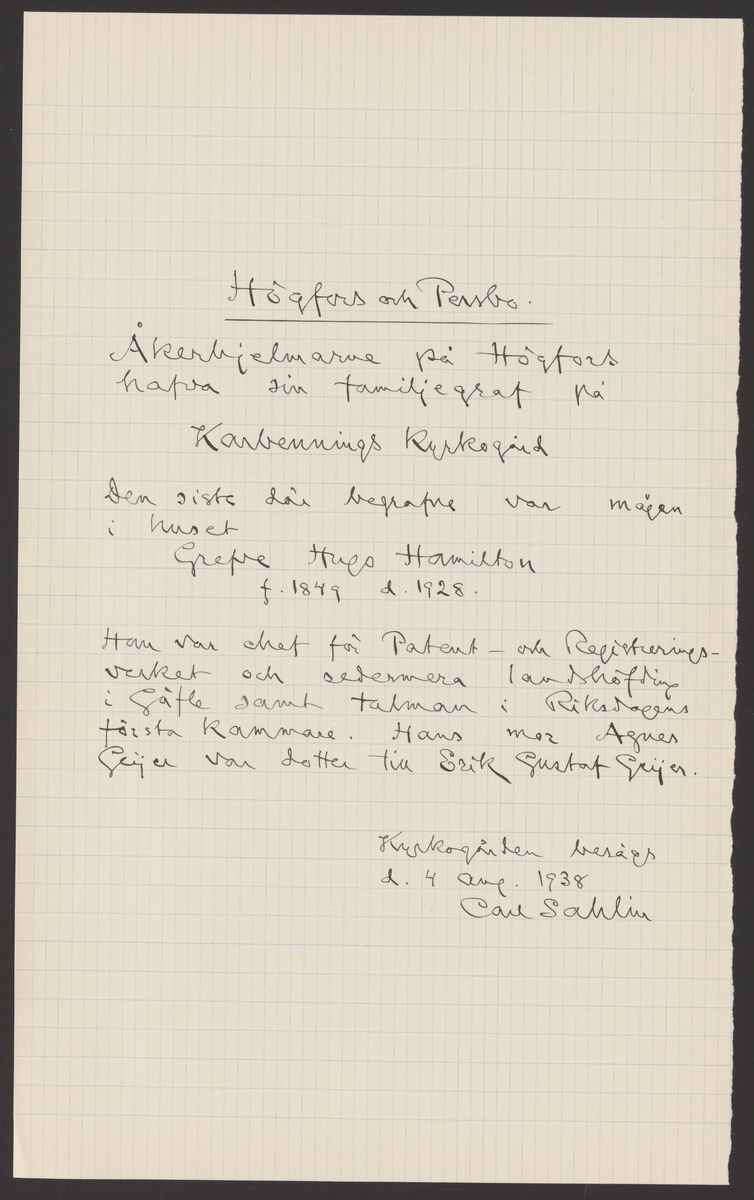 Högfors och Persbo.
Åkerhjelmarne på Högfors
hafva sin familjegraf på
Karbennings Kyrkogård
Den siste där begrafne var mågen
i huset
Grefve Hugo Hamilton
f. 1849 d. 1928.
Han var chef för Patent- och Registrerings-
verket och sedermera landshöfding
i Gäfle samt talman i Riksdagens
första Kammare. Hans mor Agnes
Geijer var dotter till Erik Gustaf Geijer.
Kyrkogården besågs
d. 4 aug. 1938
Carl Sahlin